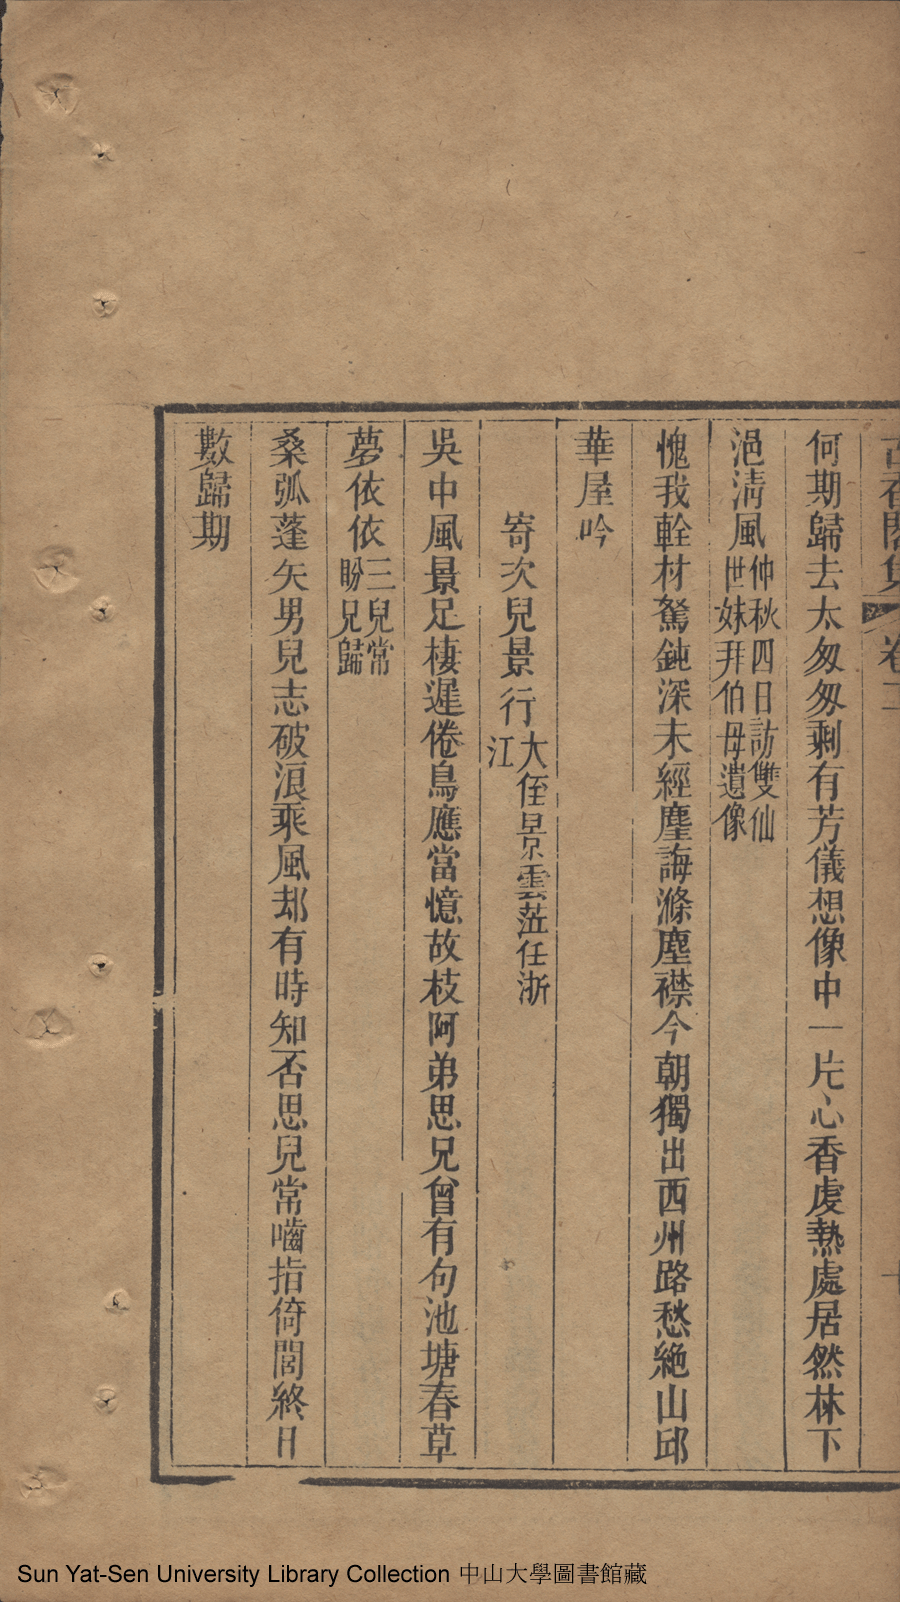 古香閣集 卷二
何期歸去太匆匆剩有芳儀想像中一片心香虔熱處居然林下
浥淸風仲秋四日訪雙仙世妹拜伯母遺像
愧我輇材駑鈍深未經麈誨滌塵襟今朝獨出西州路愁絕山邱
華屋吟
寄次兒景行大侄景雲莅任浙江
吳中風景足棲遲倦鳥應當憶故枝阿弟思兄曾有句池塘春草
夢依依三兒常盼兄歸
桑弧蓬矢男兒志破浪乘風却有時知否思兒常嚙指倚閭終日
數歸期
Sun Yat-Sen University Library Collection 中山大學圖書館藏